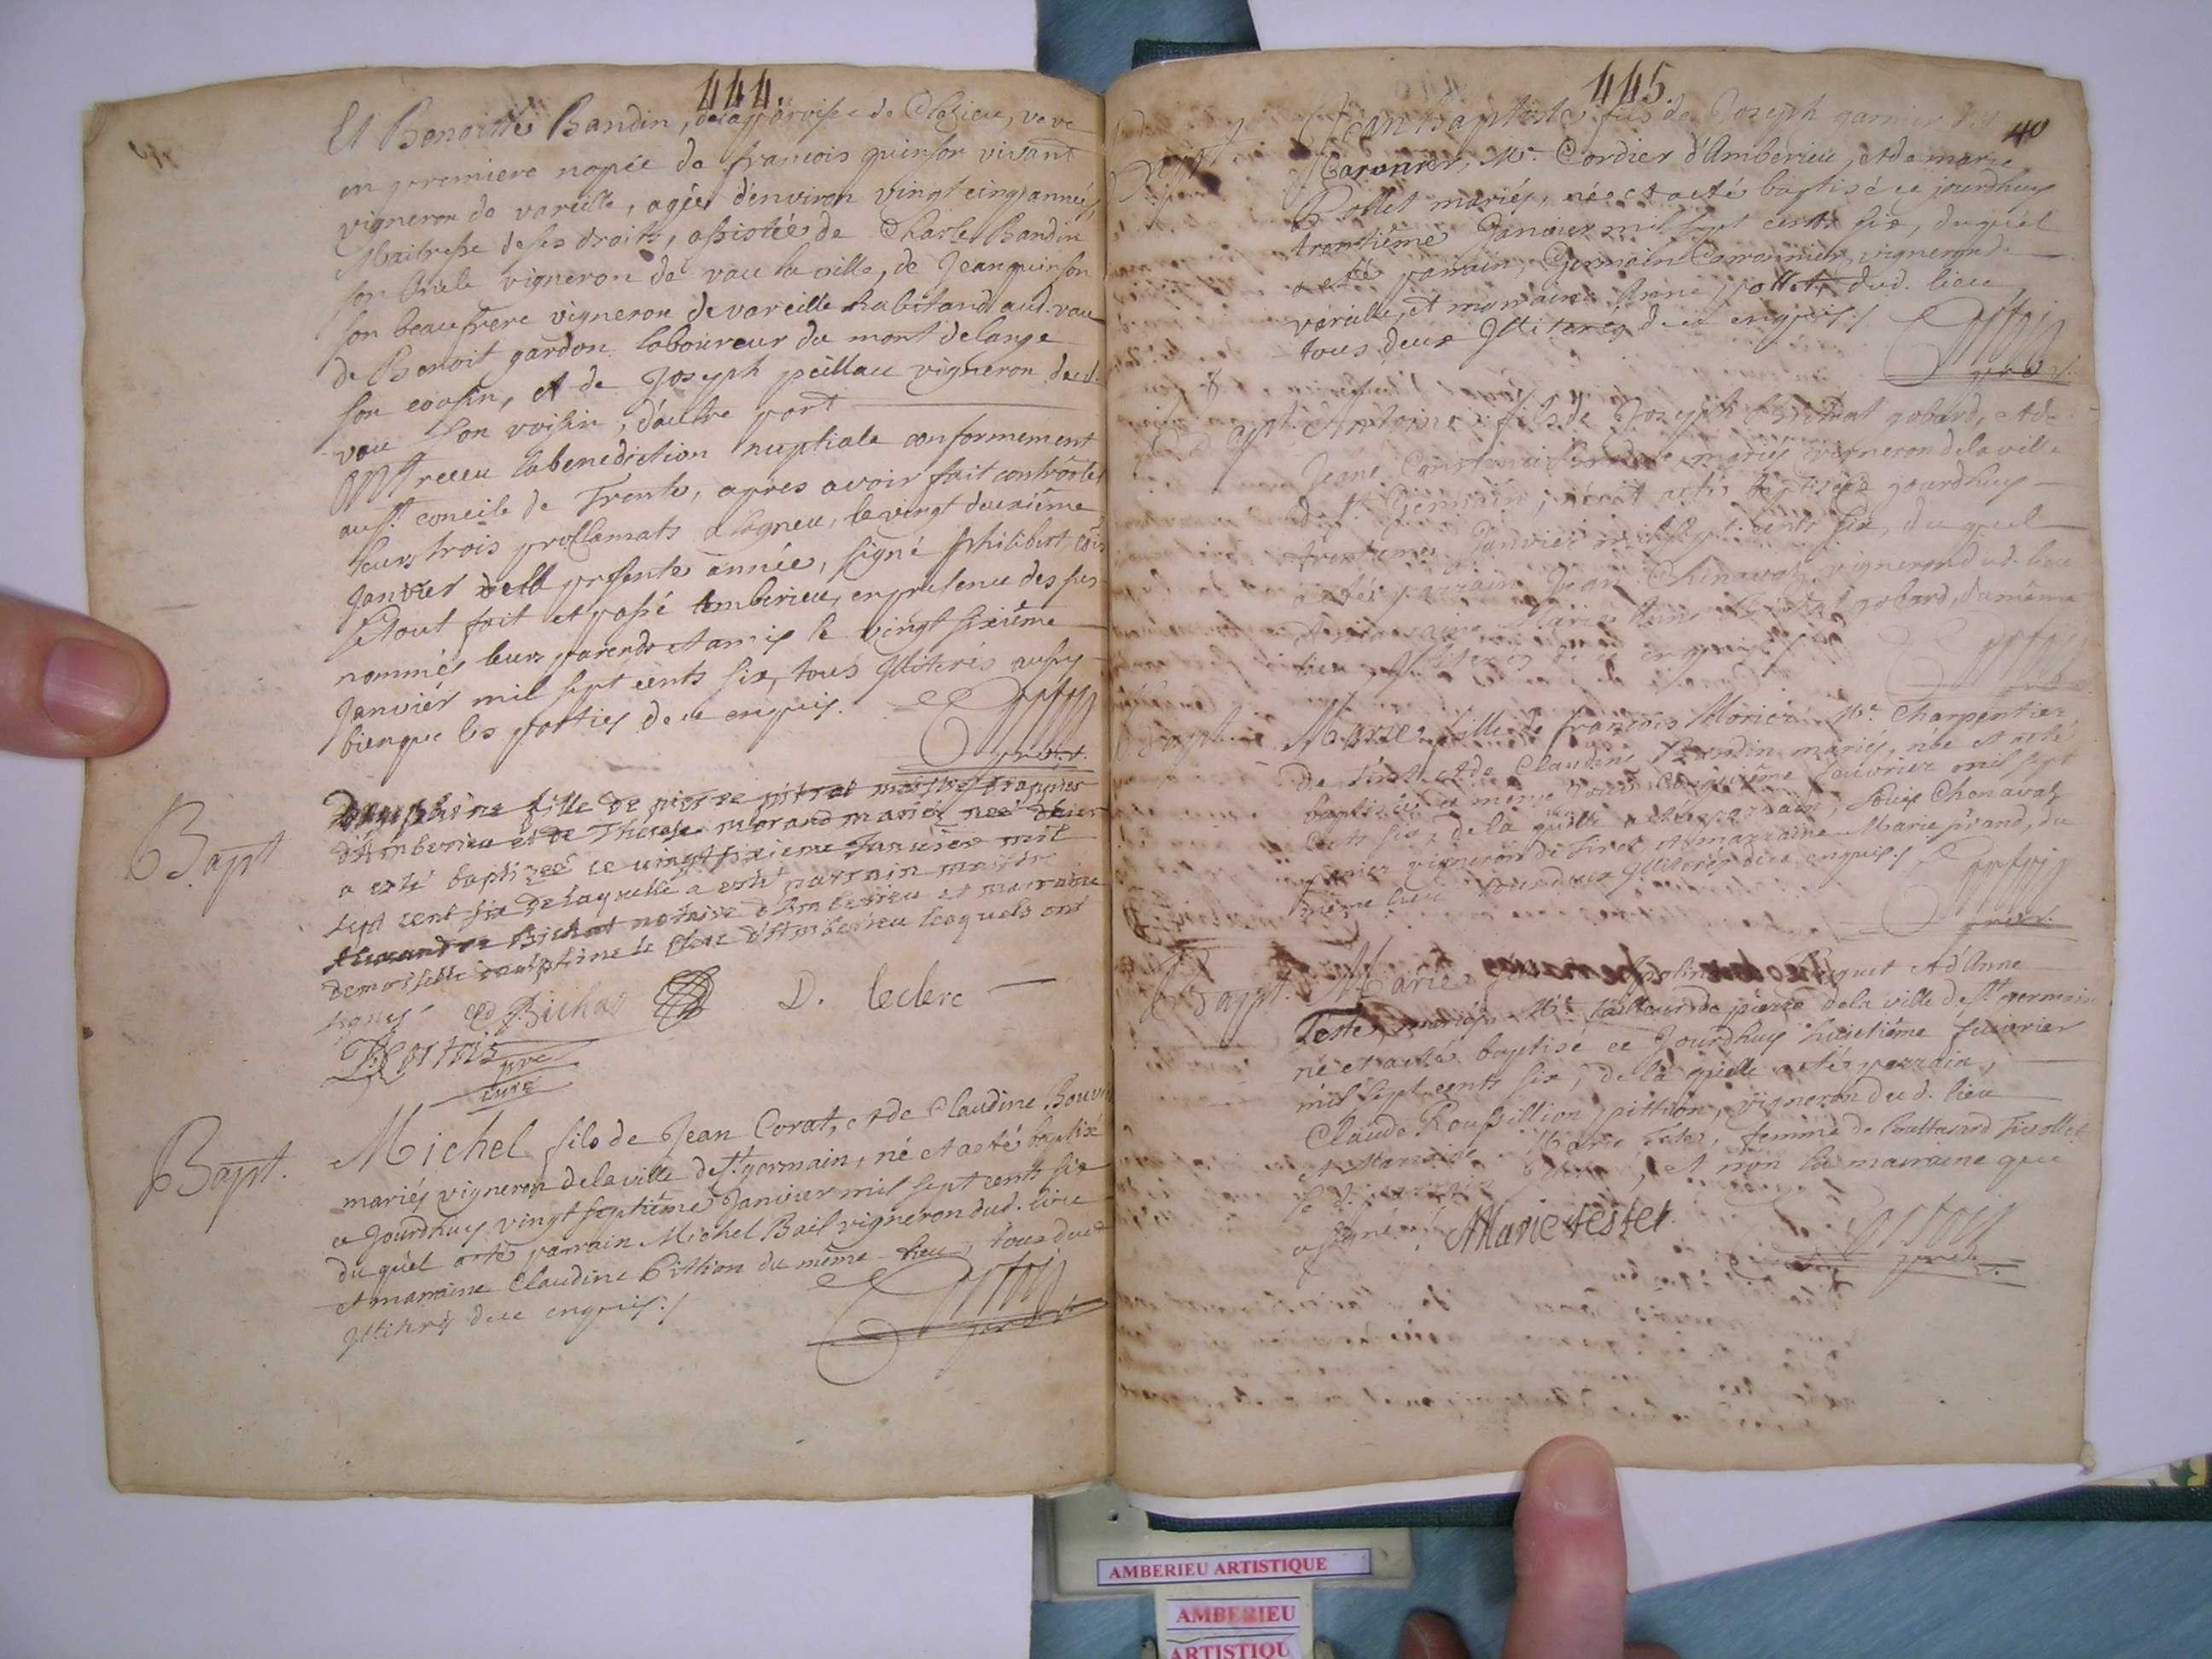 444.
Et Benoitte Bandin, de la parroisse de Chazieu, veve
en premiere nopce de francois quinson vivant
vigneron de vareille, agée d'environ vingt cinq années,
Maitresse de ses droits, assistée de Charle Bandin
son oncle vigneron de vau la ville, de Jean quinson
son beaufrere vigneron de vareille habitand aud. vau
de Benoit gardon laboureur du mont delange
son cousin, et de Joseph peillau vigneron dud.
vau son voisin, d'autre part
Ont receu la benediction nuptiale conformement
au St. concile de Trente, apres avoir fait controoler
leurs trois procllamats a lagneu, le vingt deuxiême
Janvier de la presente année, signé philibert
Le tout fait et passé Amberieu, en presence des sus
nommés leurs parends et amis le vingt sixiême
Janviér mil sept cents six, tous Illiterés aussy
bienque les parties de ce enquis.
prbr.
Bapt
Dauphine fille de pierre pitrat maistre drappier
d'Amberieu et de Therese morand mariés neé d'hier
a esté baptizeé ce vingt sixieme Janvier mil
sept cent six de laquelle a esté parrain maistre
Alexandre Bichat notaire d'Amberieu et marraine
demoiselle dauphine le Clerc d'Amberieu lesquels ont
signes Bichat D. leclerc
pre
curé
Bapt.
Michel fils de Jean Corat, et de Claudine Bouvi
mariés vigneron de la ville de St. germain, né et acté baptisé
ce Jourdhuy vingt septiême Janvier mil sept cents six
du quél acté parrain Michel Bail vigneron dud. lieu
et marraine Claudine Pittion du même lieu, tous deux
Illiterés de ce enquis./
prbr.
445.
40
Bapt
Jean baptiste, fils de Joseph garnier dit
Maronier, Me. Cordier d'Amberieu, et de marie
Pollet mariés, né et acté baptisé ce jourdhuy
trentiême Janvier mil sept cents six, duquél
a eté parrain, Germain Maronnier vigneron de
vareille, et marraine Anne pollet, dud. lieu
tous deux Illiterés de ce enquis./
prbr.
Bapt.
Antoine fils de Joseph Brithat gobard, et de
Jeane Constance mariés vigneron de la ville
de St. Germain, né et acté baptisé ce jourdhuy
trentieme Janvier mil sept cents six, du quel
acté parrain Jean Chenavaz vigneron dud. lieu
et marraine Marie Anne gobard, du même
lieu Illiterés de ce enquis./
Bapt.
Marie fille de francois Morier Me. Charpentier
de tiret et de Claudine Bandin mariés, née et acté
baptisée ce même Jour cinquiême feuvrier mil sept
cents six, de la quelle a eté parrain, Louis Chenavaz
vigneron de tiret et marraine Marie prand, du
même lieu tous deux Illiterés de ce enquis./
prbr.
Bapt.
Marie Apoline Puquet et d'Anne
Tester, mariés Me. tailleur de pierre de la ville de St. germain
né et acté baptisé ce Jourdhuy huictiême feuvrier
mil sept cents six, de la quelle acté parrain,
Claude Roussillion pittion, vigneron dud. lieu
et Marraine Marie Tester, femme de Baltasard Tivollet
le d. parrain et non la marraine que
a signé./ Marie tester
prbr.
AMBERIEU ARTISTIQUE
AMBERIEU
ARTISTIQU